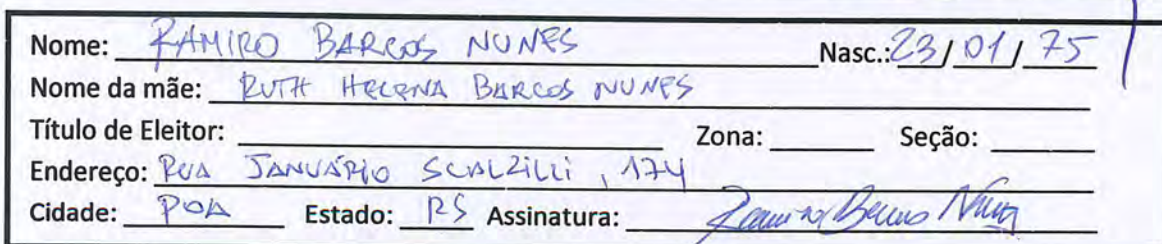 Nome: RAMIRO BARCOS NUNES Nasc.: 23/01/75
Nome da mãe: RUTH HELENA BARCOS NUNES
Título de Eleitor: Zona: Seção:
Endereço: RUA JANUÁRIO SCALZILLI, 174
Cidade: POA Estado: RS Assinatura: Ramiro Barcos Nunes